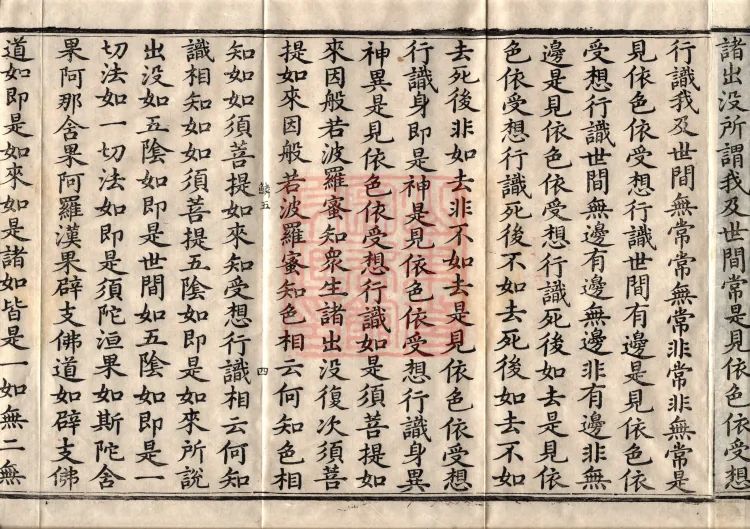 諸出没所謂我及世間常是見依色依受想
行識我及世間無常常無常非常非無常是
見依色依受想行識世間有邊是見依色依
受想行識世間無邊有邊無邊非有邊非無
邊是見依色依受想行識死後如去是見依
色依受想行識死後不如去死後如去不如
去死後非如去非不如去是見依色依受想
行識身即是神是見依色依受想行識身異
神異是見依色依受想行識如是須菩提如
來因般若波羅蜜知衆生諸出没復次須菩
提如來因般若波羅蜜知色相云何知色相
鱗五
四
知如如須菩提如來知受想行識相云何知
識相知如如須菩提五陰如即是如來所說
出没如五陰如即是世間如五陰如即是一
切法如一切法如即是須陀洹果如斯陀含
果阿那含果阿羅漢果辟支佛道如辟支佛
道如即是如來如是諸如皆是一如無二無